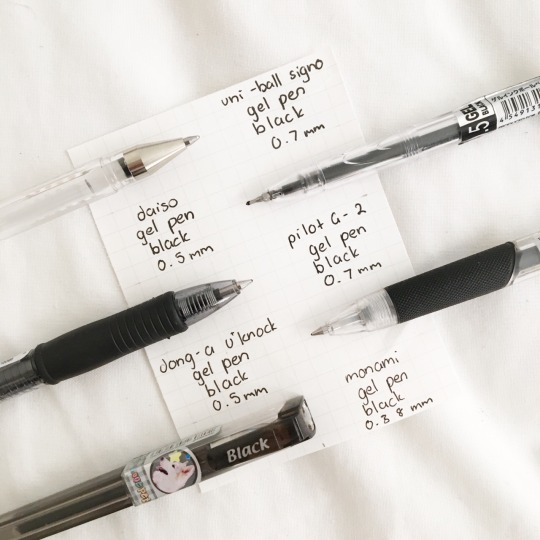 uni-ball signo
gel pen
black
0.7 mm
daiso
gel pen
black
0.5 mm
pilot G-2
gel pen
black
0.7 mm
dong-a u'knock
gel pen
black
0.5 mm
monami
gel pen
black
0.38 mm
.5 GEL
BLACK
Black